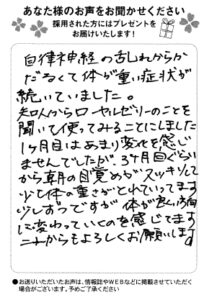 あなた様のお声をお聞かせください
採用された方にはプレゼントを
お届けいたします!
自律神経の乱れからか
だるくて体が重い症状が
続いていました。
知人からローヤルゼリーのことを
聞いて使ってみることにしました
1ヶ月目はあまり変化を感じ
ませんでしたが、3ヶ月目ぐらい
から朝の目覚めがスッキリして
少し体の重さがとれていってます
少しずつですが体が良い方向
に変わっていくのを感じてます
これからもよろしくお願いします
●お送りいただいたお声は、情報誌やWEBなどに掲載させていただく
場合がございます。予めご了承ください